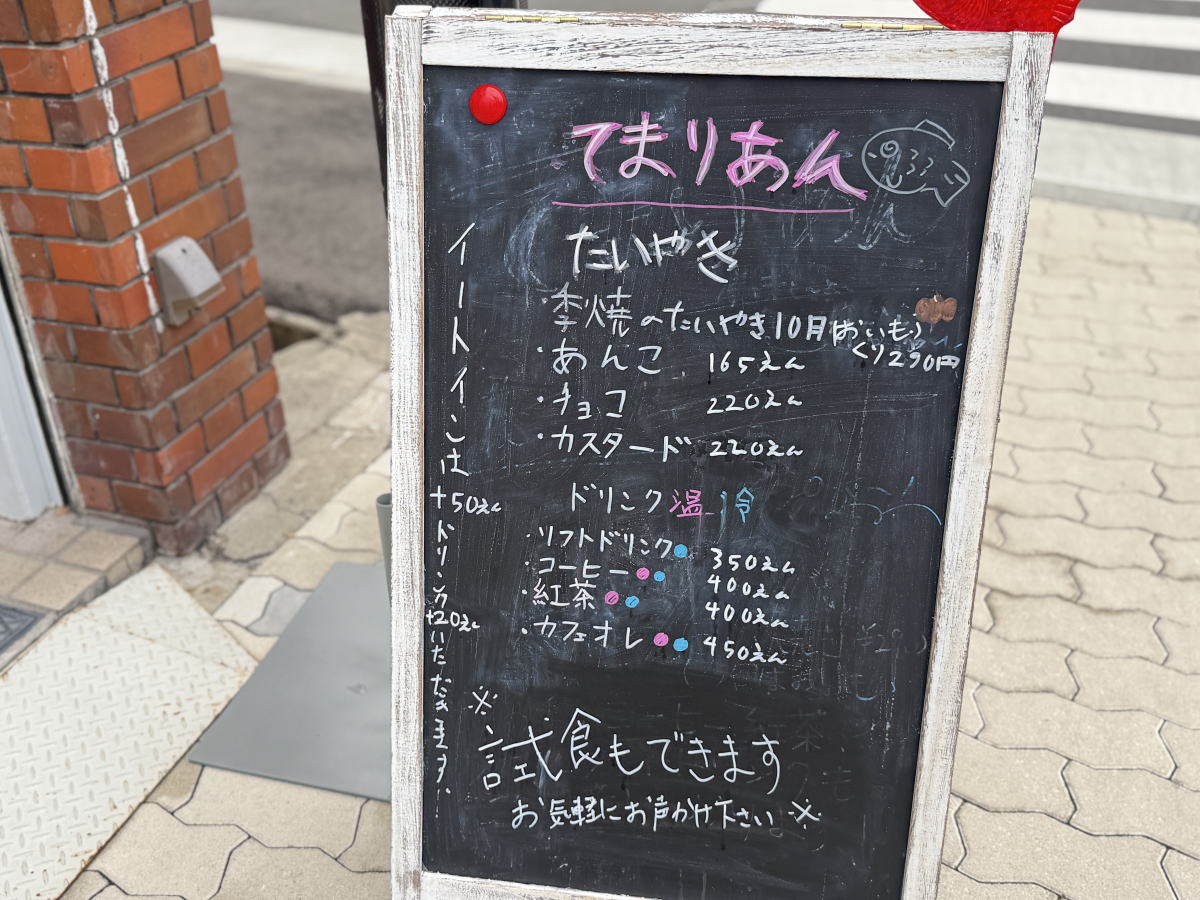 てまりあん
たいやき
季焼のたいやき10月(おいも)
くり290円
・あんこ 165えん
・チョコ 220えん
・カスタード 220えん
ドリンク 温 冷
・ソフトドリンク 350えん
・コーヒー 400えん
・紅茶 400えん
・カフェオレ 450えん
※試食もできます
お気軽にお声かけ下さい※
イートインは
+50えん
ドリンク
+20えん
いただきます。